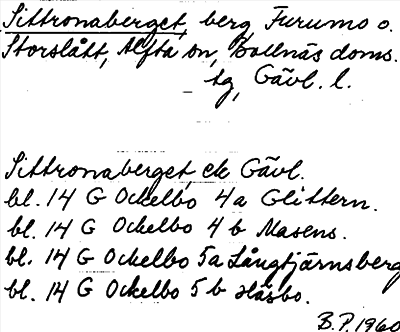 Sittronaberget, berg, Furumo o.
Storslått, Alfta sn, Bollnäs doms.
tg, Gävl. l.
Sittronaberget, ek Gävl.
bl. 14 G Ockelbo 4a Glittern.
bl. 14 G Ockelbo 4 b Masens.
bl. 14 G Ockelbo 5a Långtjärnsberg
bl. 14 G Ockelbo 5 b Häsbo.
B.P. 1960